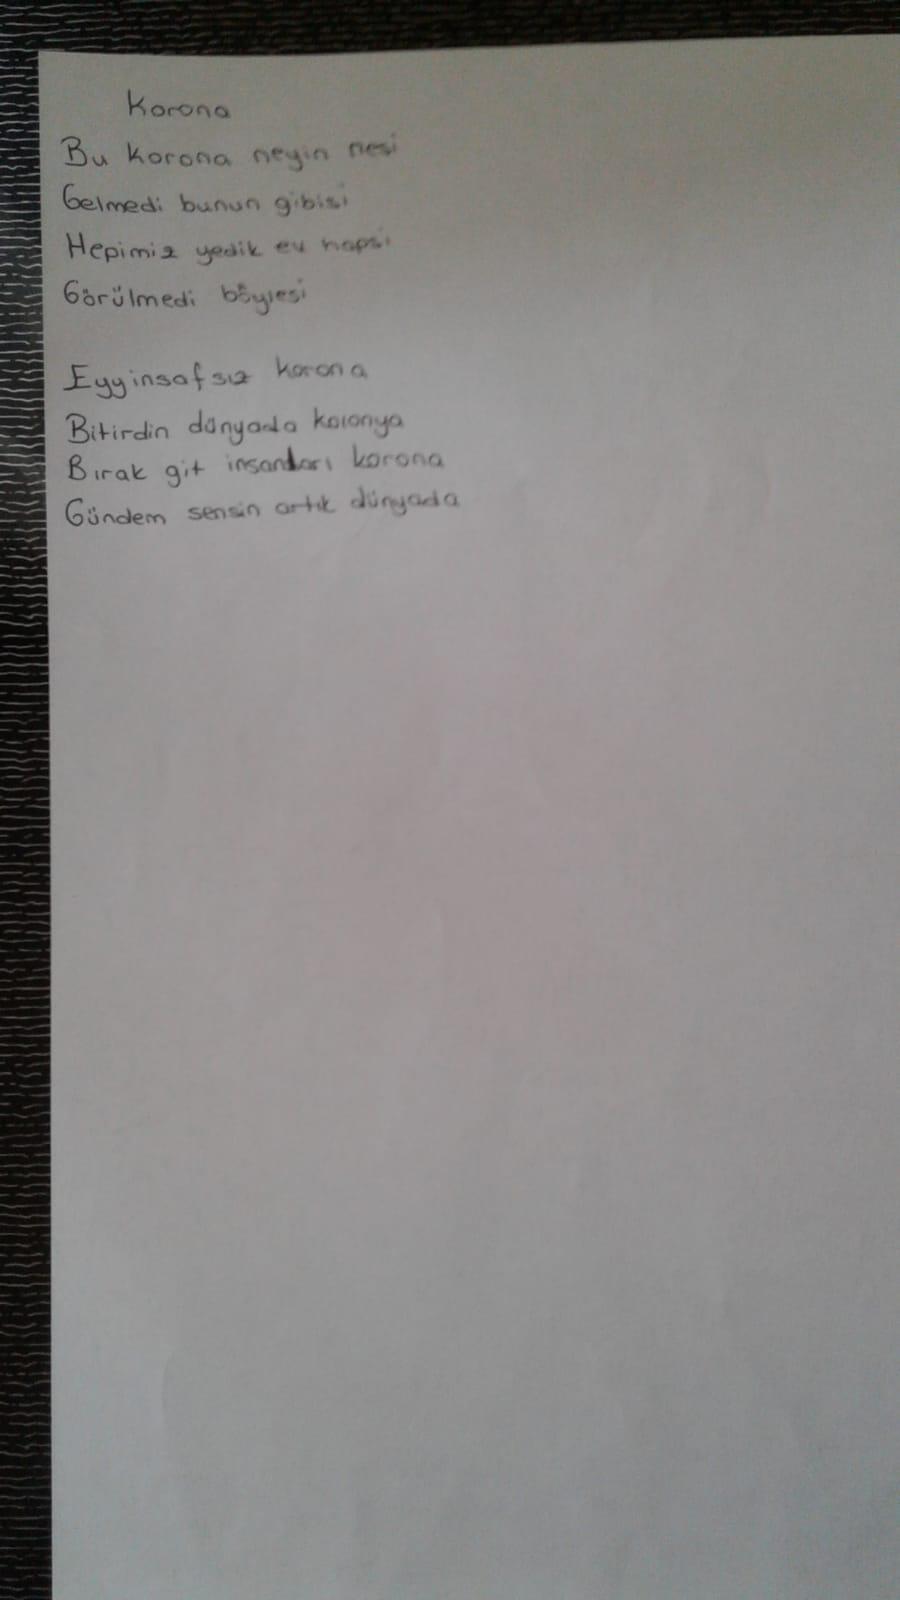 Korona
Bu korona neyin nesi
Gelmedi bunun gibisi
Hepimiz yedik ev hapsi
Görülmedi böylesi
Eyyinsafsız korona
Bitirdin dünyada kolonya
Bırak git insanları korona
Gündem sensin artık dünyada